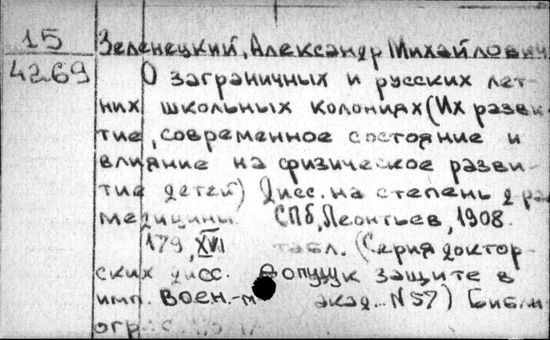 15
4269
Зеленецкий, Александр Михайлович
О заграничных и русских лет-
них школьных колониях (Их разви
тие, современное состояние и
влияние на физическое разви-
тие детей) Дисс. на степень д-ра
медицины. СПб, Леонтьев, 1908.
179, XVI табл. (Серия доктор-
ских дисс. допущ к защите в
имп. Воен.-м акад... N 57) Библи
огр